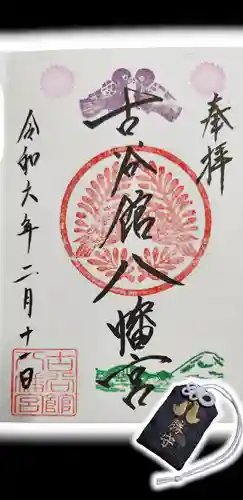 奉拝
古谷館八幡宮
令和六年二月十一日
古谷館
八幡宮
勝守